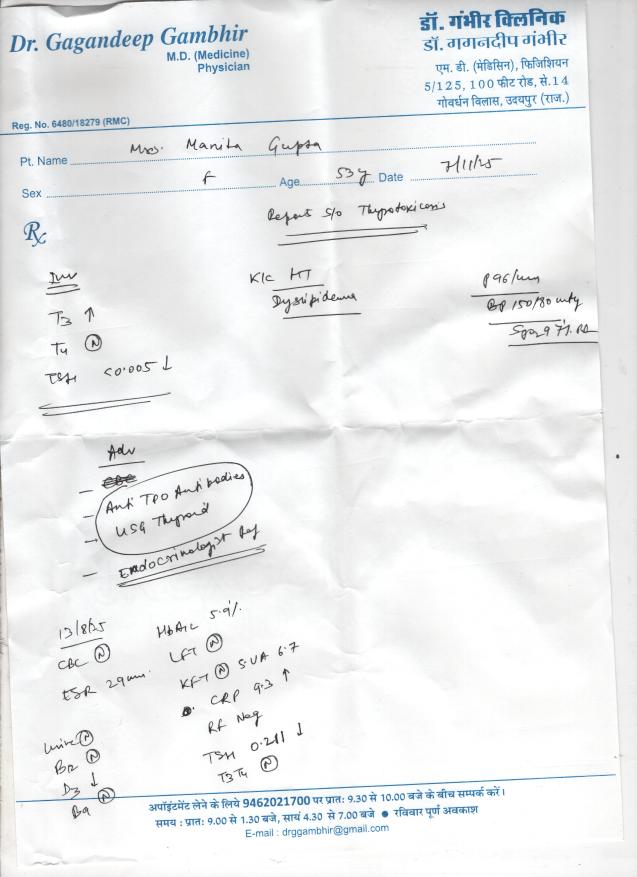 Dr. Gagandeep Gambhir
M.D. (Medicine)
Physician
डॉ. गंभीर क्लिनिक
डॉ. गगनदीप गंभीर
एम. डी. (मेडिसिन), फिजिशियन
5/125, 100 फीट रोड, से.14
गोवर्धन विलास, उदयपुर (राज.)
Reg. No. 6480/18279 (RMC)
Pt. Name Mrs. Manita Gupta
Sex F Age 53y Date 7/11/25
Report s/o Thyrotoxicosis
Rx
Inv
T3 ↑
T4 (N)
TSH <0.005 ↓
K/c HT
Dyslipidemia
P 96/min
BP 150/80 mmHg
SpO2 97% RA
Adv
- Anti TPO Antibodies
- USG Thyroid
- Endocrinologist Ref
13/8/25
CBC (N)
ESR 29mm
Urine (N)
B12 (N)
D3 ↓
B9 (N)
HbA1c 5.9%
LFT (N)
KFT (N) S.UA 6.7
CRP 9.3 ↑
RF Neg
TSH 0.211 ↓
T3T4 (N)
अपॉइंटमेंट लेने के लिये 9462021700 पर प्रातः 9.30 से 10.00 बजे के बीच सम्पर्क करें।
समय : प्रातः 9.00 से 1.30 बजे, सायं 4.30 से 7.00 बजे ● रविवार पूर्ण अवकाश
E-mail : drggambhir@gmail.com